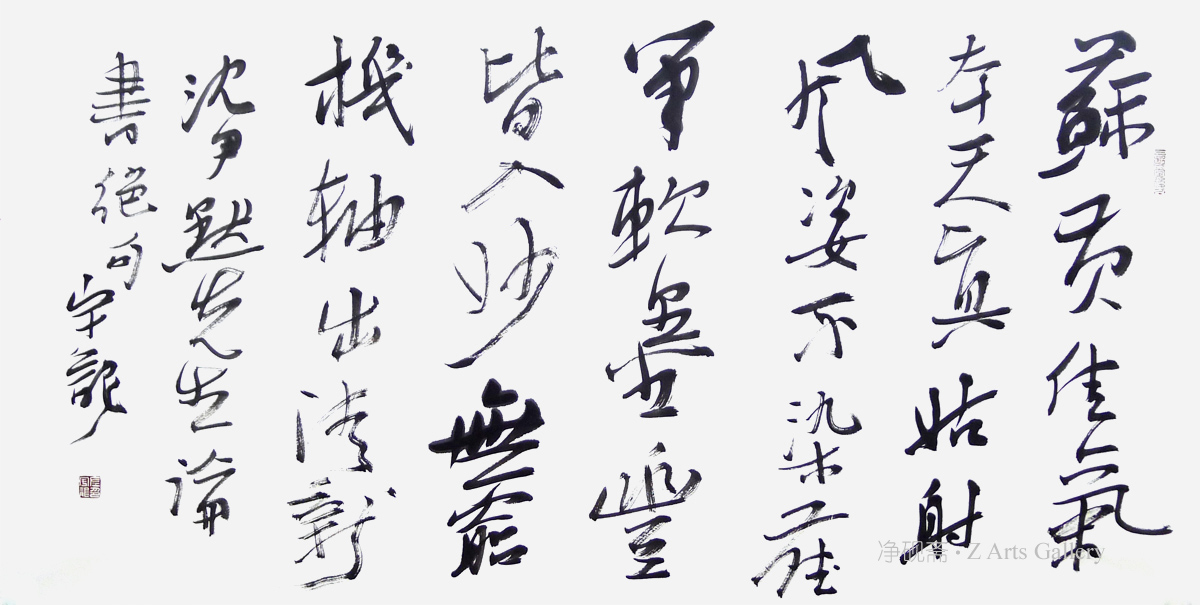 蘇黄佳氣
夲天真姑射
風姿不染塵
筆軟墨豐
皆入妙無窮
機軸出清新
沈尹默先生論
書絕句宇記
净砚斋 · Z Arts Gallery